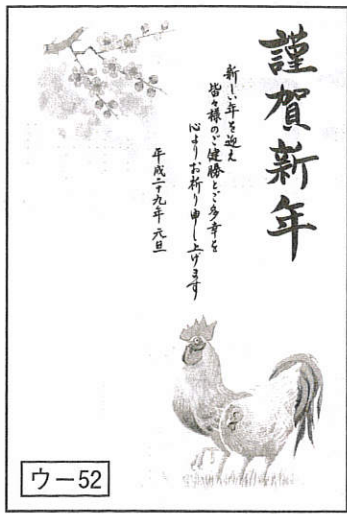 謹賀新年
新しい年を迎え
皆々様のご健勝とご多幸を
心よりお祈り申し上げます
平成二十九年 元旦
ウー52